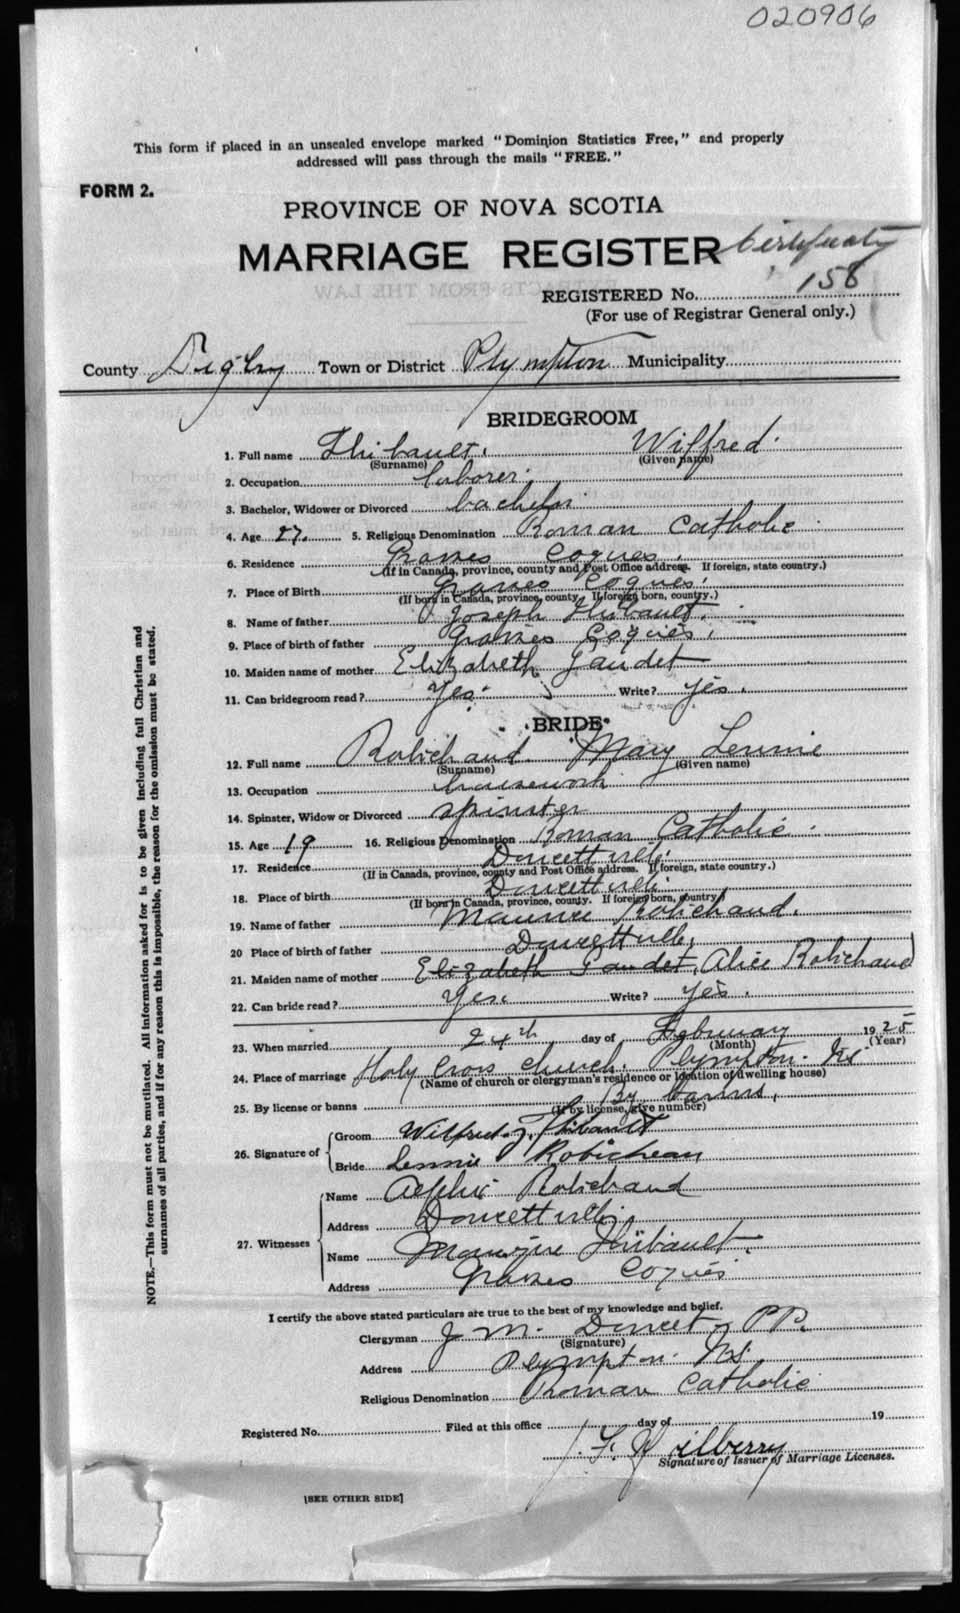 020906
This form if placed in an unsealed envelope marked "Dominion Statistics Free," and properly
addressed will pass through the mails "FREE."
FORM 2.
PROVINCE OF NOVA SCOTIA
MARRIAGE REGISTER
REGISTERED No. 158
(For use of Registrar General only.)
County Digby Town or District Plympton Municipality
BRIDEGROOM
1. Full name Thibault. Wilfred.
(Surname) (Given name)
2. Occupation laborer
3. Bachelor, Widower or Divorced bachelor
4. Age 27. 5. Religious Denomination Roman Catholic
6. Residence Grosses Coques.
(If in Canada, province, county and Post Office address. If foreign, state country.)
7. Place of Birth Grosses Coques.
(If born in Canada, province, county. If foreign born, country.)
8. Name of father Joseph Thibault.
9. Place of birth of father Grosses Coques.
10. Maiden name of mother Elizabeth Gaudet
11. Can bridegroom read? Yes. Write? yes.
BRIDE
12. Full name Robichaud. Mary Lennie
(Surname) (Given name)
13. Occupation housework
14. Spinster, Widow or Divorced spinster
15. Age 19 16. Religious Denomination Roman Catholic.
17. Residence Doucettville.
(If in Canada, province, county and Post Office address. If foreign, state country.)
18. Place of birth Doucettville
(If born in Canada, province, county. If foreign born, country)
19. Name of father Maurice Robichaud.
20 Place of birth of father Doucettville,
21. Maiden name of mother Elizabeth Gaudet, Alice Robichaud
22. Can bride read? Yes. Write? yes.
23. When married 24th day of February 1925
(Month) (Year)
24. Place of marriage Holy Cross Church. Plympton. NS
(Name of church or clergyman's residence or location of dwelling house)
25. By license or banns By banns,
(If by license, give number)
26. Signature of Groom Wilfred J. Thibault
Bride Lennie Robicheau
27. Witnesses Name Robichaud
Address Doucettville
Name Thibault.
Address Grosses Coques
I certify the above stated particulars are true to the best of my knowledge and belief.
Clergyman J M. Doucet, PP.
(Signature)
Address Plympton. NS.
Religious Denomination Roman Catholic
Registered No. Filed at this office day of 19
Signature of Issuer of Marriage Licenses.
[SEE OTHER SIDE]
NOTE.—This form must not be mutilated. All information asked for is to be given including full Christian and
surnames of all parties, and if for any reason this is impossible, the reason for the omission must be stated.